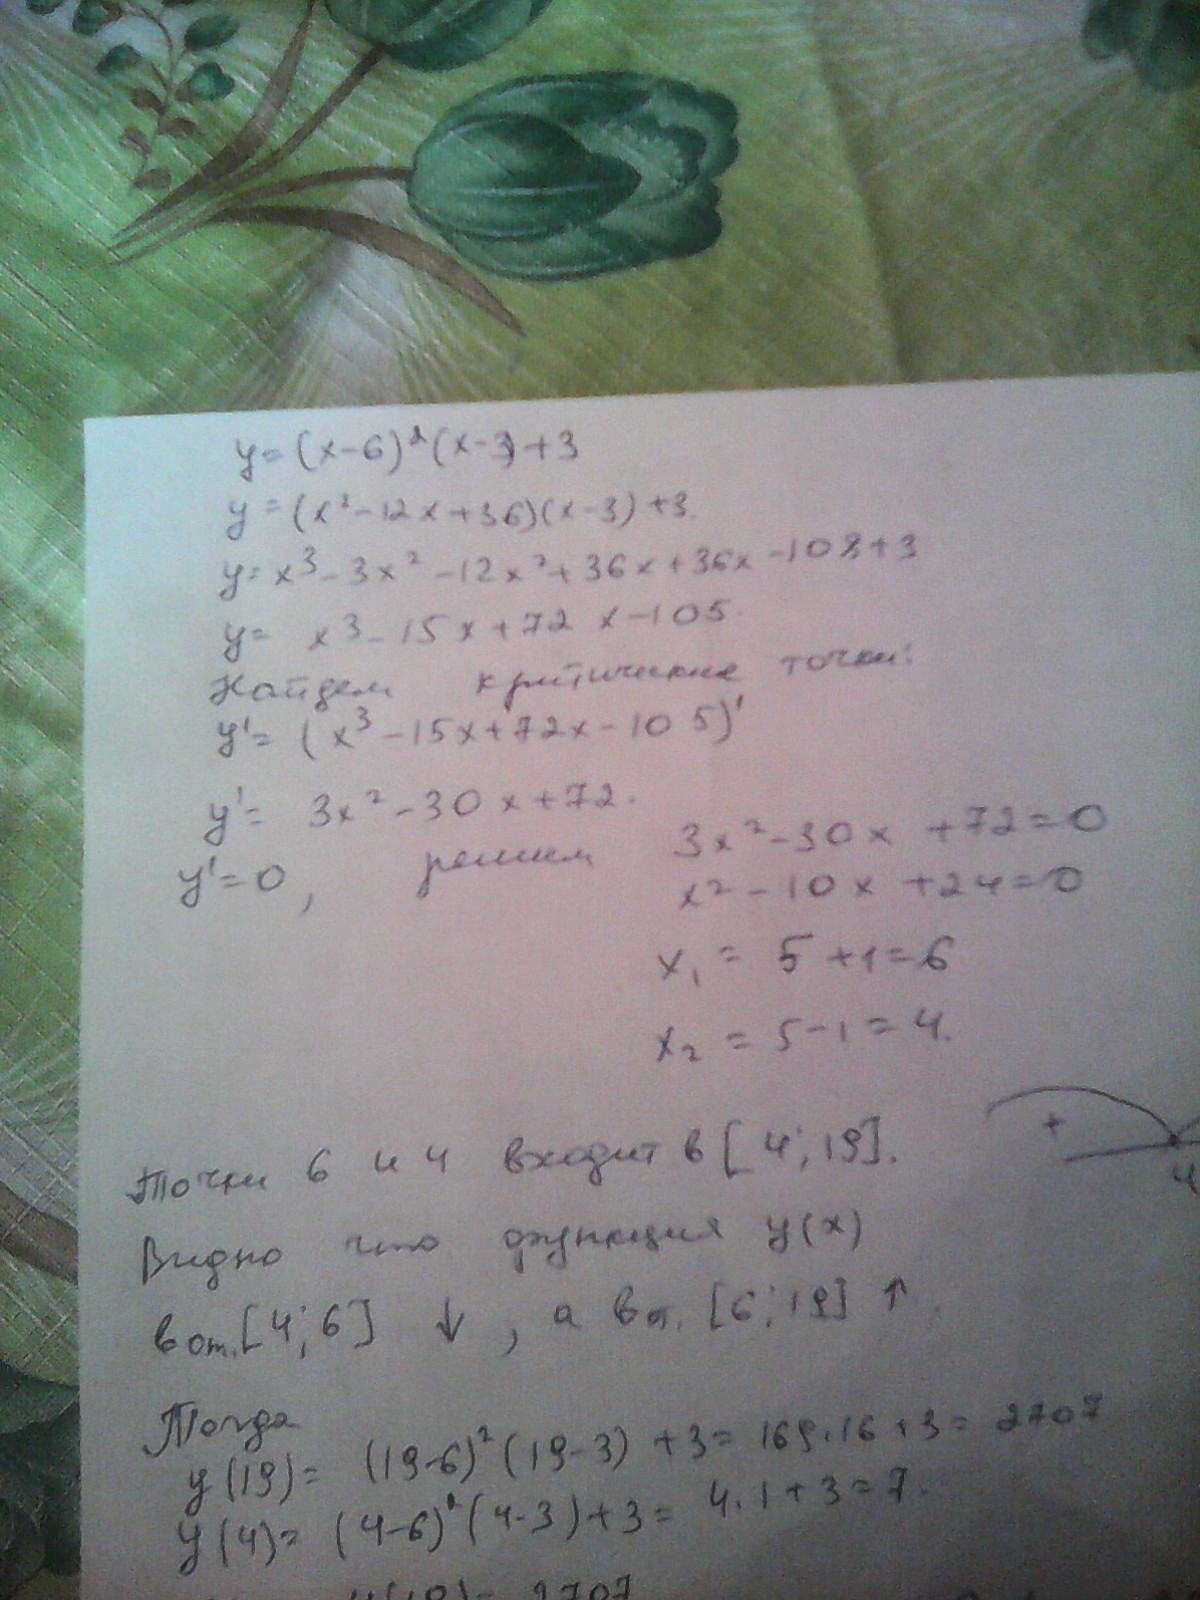 y = (x-6)²(x-3)+3
y = (x²-12x+36)(x-3)+3.
y = x³-3x²-12x²+36x+36x-108+3
y = x³-15x+72x-105.
Найдем критические точки:
y' = (x³-15x+72x-105)'
y' = 3x²-30x+72.
y'=0, решим 3x²-30x+72=0
x²-10x+24=0
x₁ = 5+1=6
x₂ = 5-1=4.
+
4
Точки 6 и 4 входит в [4;19].
Видно что функция y(x)
в от.[4;6] ↓, а в от. [6;19] ↑.
Тогда
y(19) = (19-6)²(19-3)+3 = 169.16+3 = 2707
y(4) = (4-6)²(4-3)+3 = 4.1+3=7.
y(19) = 2707